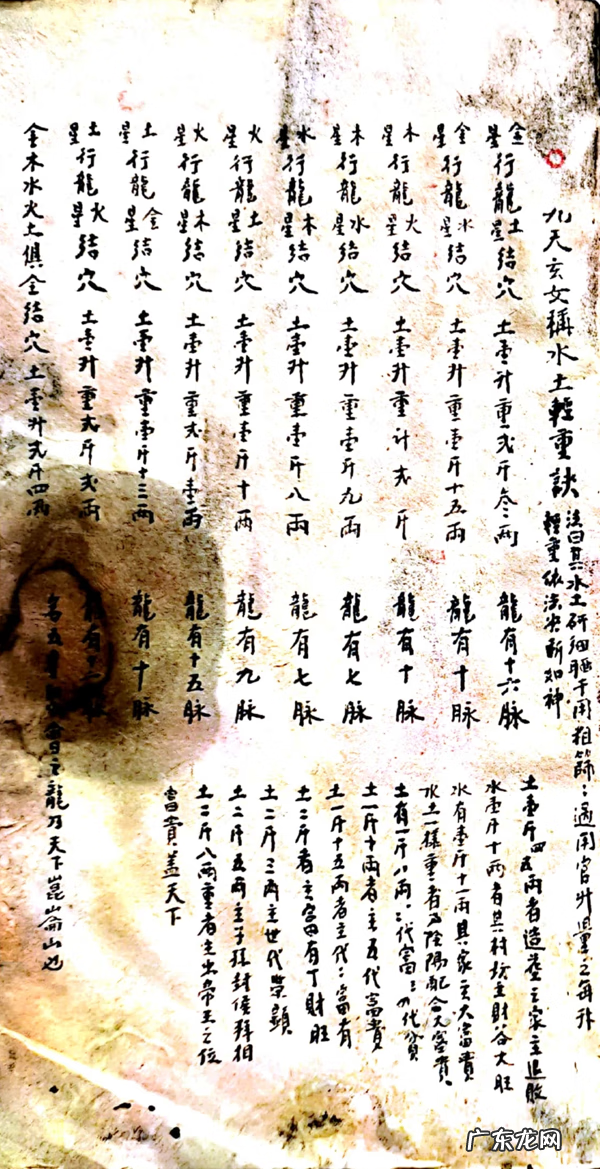 九天玄女稱水土輕重訣
法曰其水土研細晒干用粗篩二過用官升量之每升
輕重依法決斷如神
金星行龍土星結穴 土壹升重弍斤叁兩 龍有十六脉
金星行龍水星結穴 土壹升重壹斤十五兩 龍有十脉
木星行龍火星結穴 土壹升重計弍斤 龍有十脉
木星行龍水星結穴 土壹升重壹斤九兩 龍有七脉
水星行龍木星結穴 土壹升重壹斤八兩 龍有七脉
火星行龍土星結穴 土壹升重壹斤十兩 龍有九脉
火星行龍木星結穴 土壹升重弍斤壹兩 龍有十五脉
土星行龍金星結穴 土壹升重壹斤十三兩 龍有十脉
土星行龍火星結穴 土壹升重弍斤弍兩 龍有十脉
金木水火土俱全結穴 土壹升弍斤四兩 五龍乃天下崑崙山也
土壹斤四五兩者造塋主家主退敗
水壹斤十兩者其村坊主財谷大旺
水有壹斤十一兩其家主大富貴
水土一樣重者乃陰陽配合大富貴
土有一斤八兩二代富三四代貧
土一斤十兩者主五代富貴
土一斤十五兩者主代二富有
土二斤者主富有丁財旺
土二斤三兩主世代榮顯
土二斤五兩主子孫封侯拜相
土二斤八兩重者主出帝王之位
富貴蓋天下
广东龙网